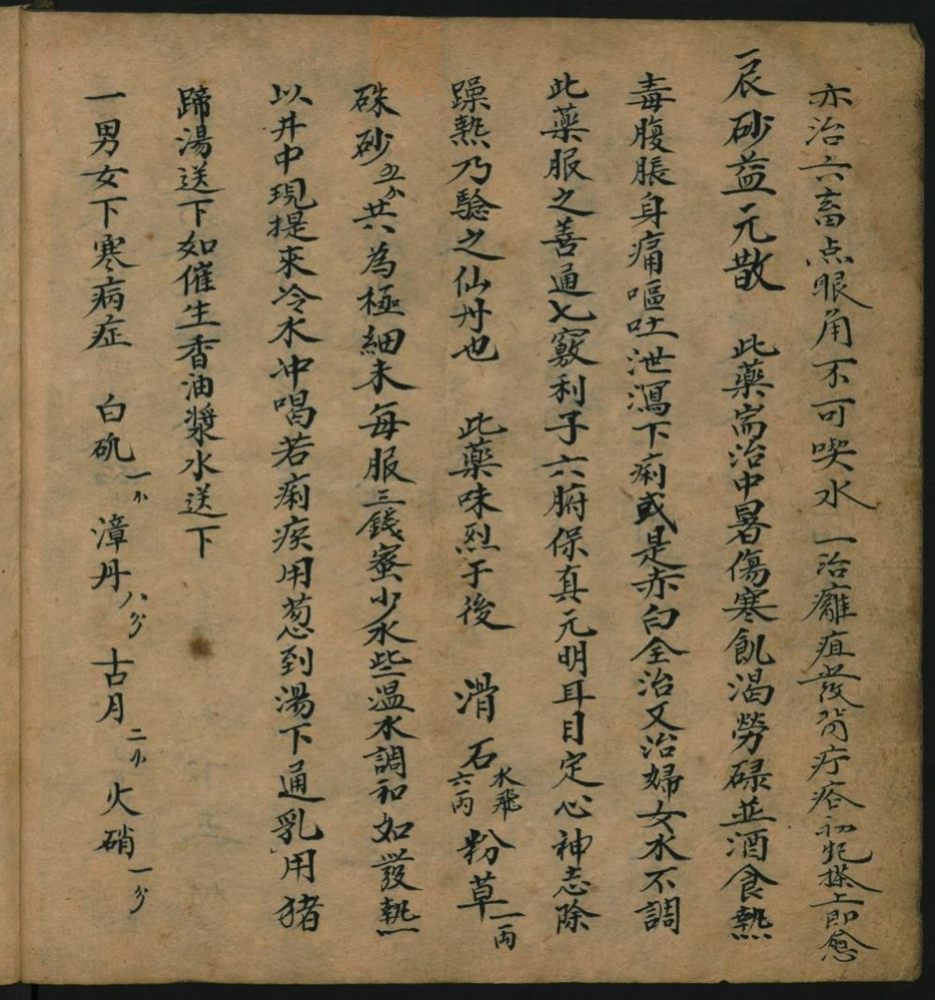 亦治六畜点眼角不可喫水 一治癰疽發背疔瘡初起搽上即愈
一辰砂益元散 此藥耑治中暑傷寒飢渴勞碌並酒食熱
毒腹脹身痛嘔吐泄瀉下痢或是赤白全治又治婦女水不調
此藥服之善通七竅利子六腑保真元明耳目定心神志除
躁熱乃驗之仙丹也 此藥味烈于後 滑石水飛六両 粉草一両
硃砂五分 共為極細末每服三錢蜜少水些温水調和如發熱
以井中現提來冷水冲喝若痢疾用葱到湯下通乳用猪
蹄湯送下如催生香油漿水送下
一男女下寒病症 白矾一小 漳丹八分 古月二小 火硝一分